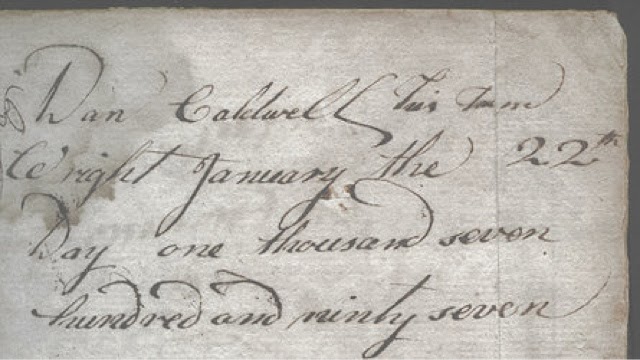 Dan Caldwell his hand
Wright January the 22th
Day one thousand seven
hundred and ninty seven